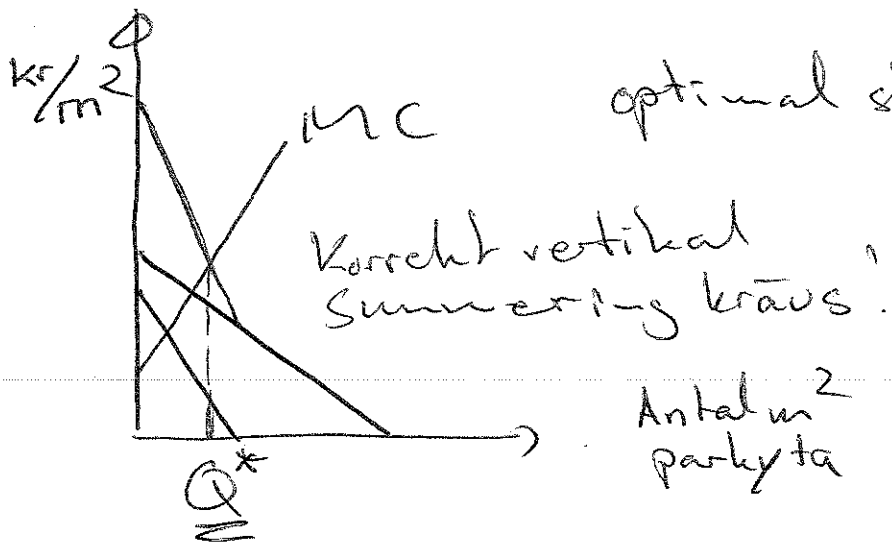 kr/m²
MC
optimal
Korrekt vertikal
Summering krävs!
Antal m²
parkyta
Q*